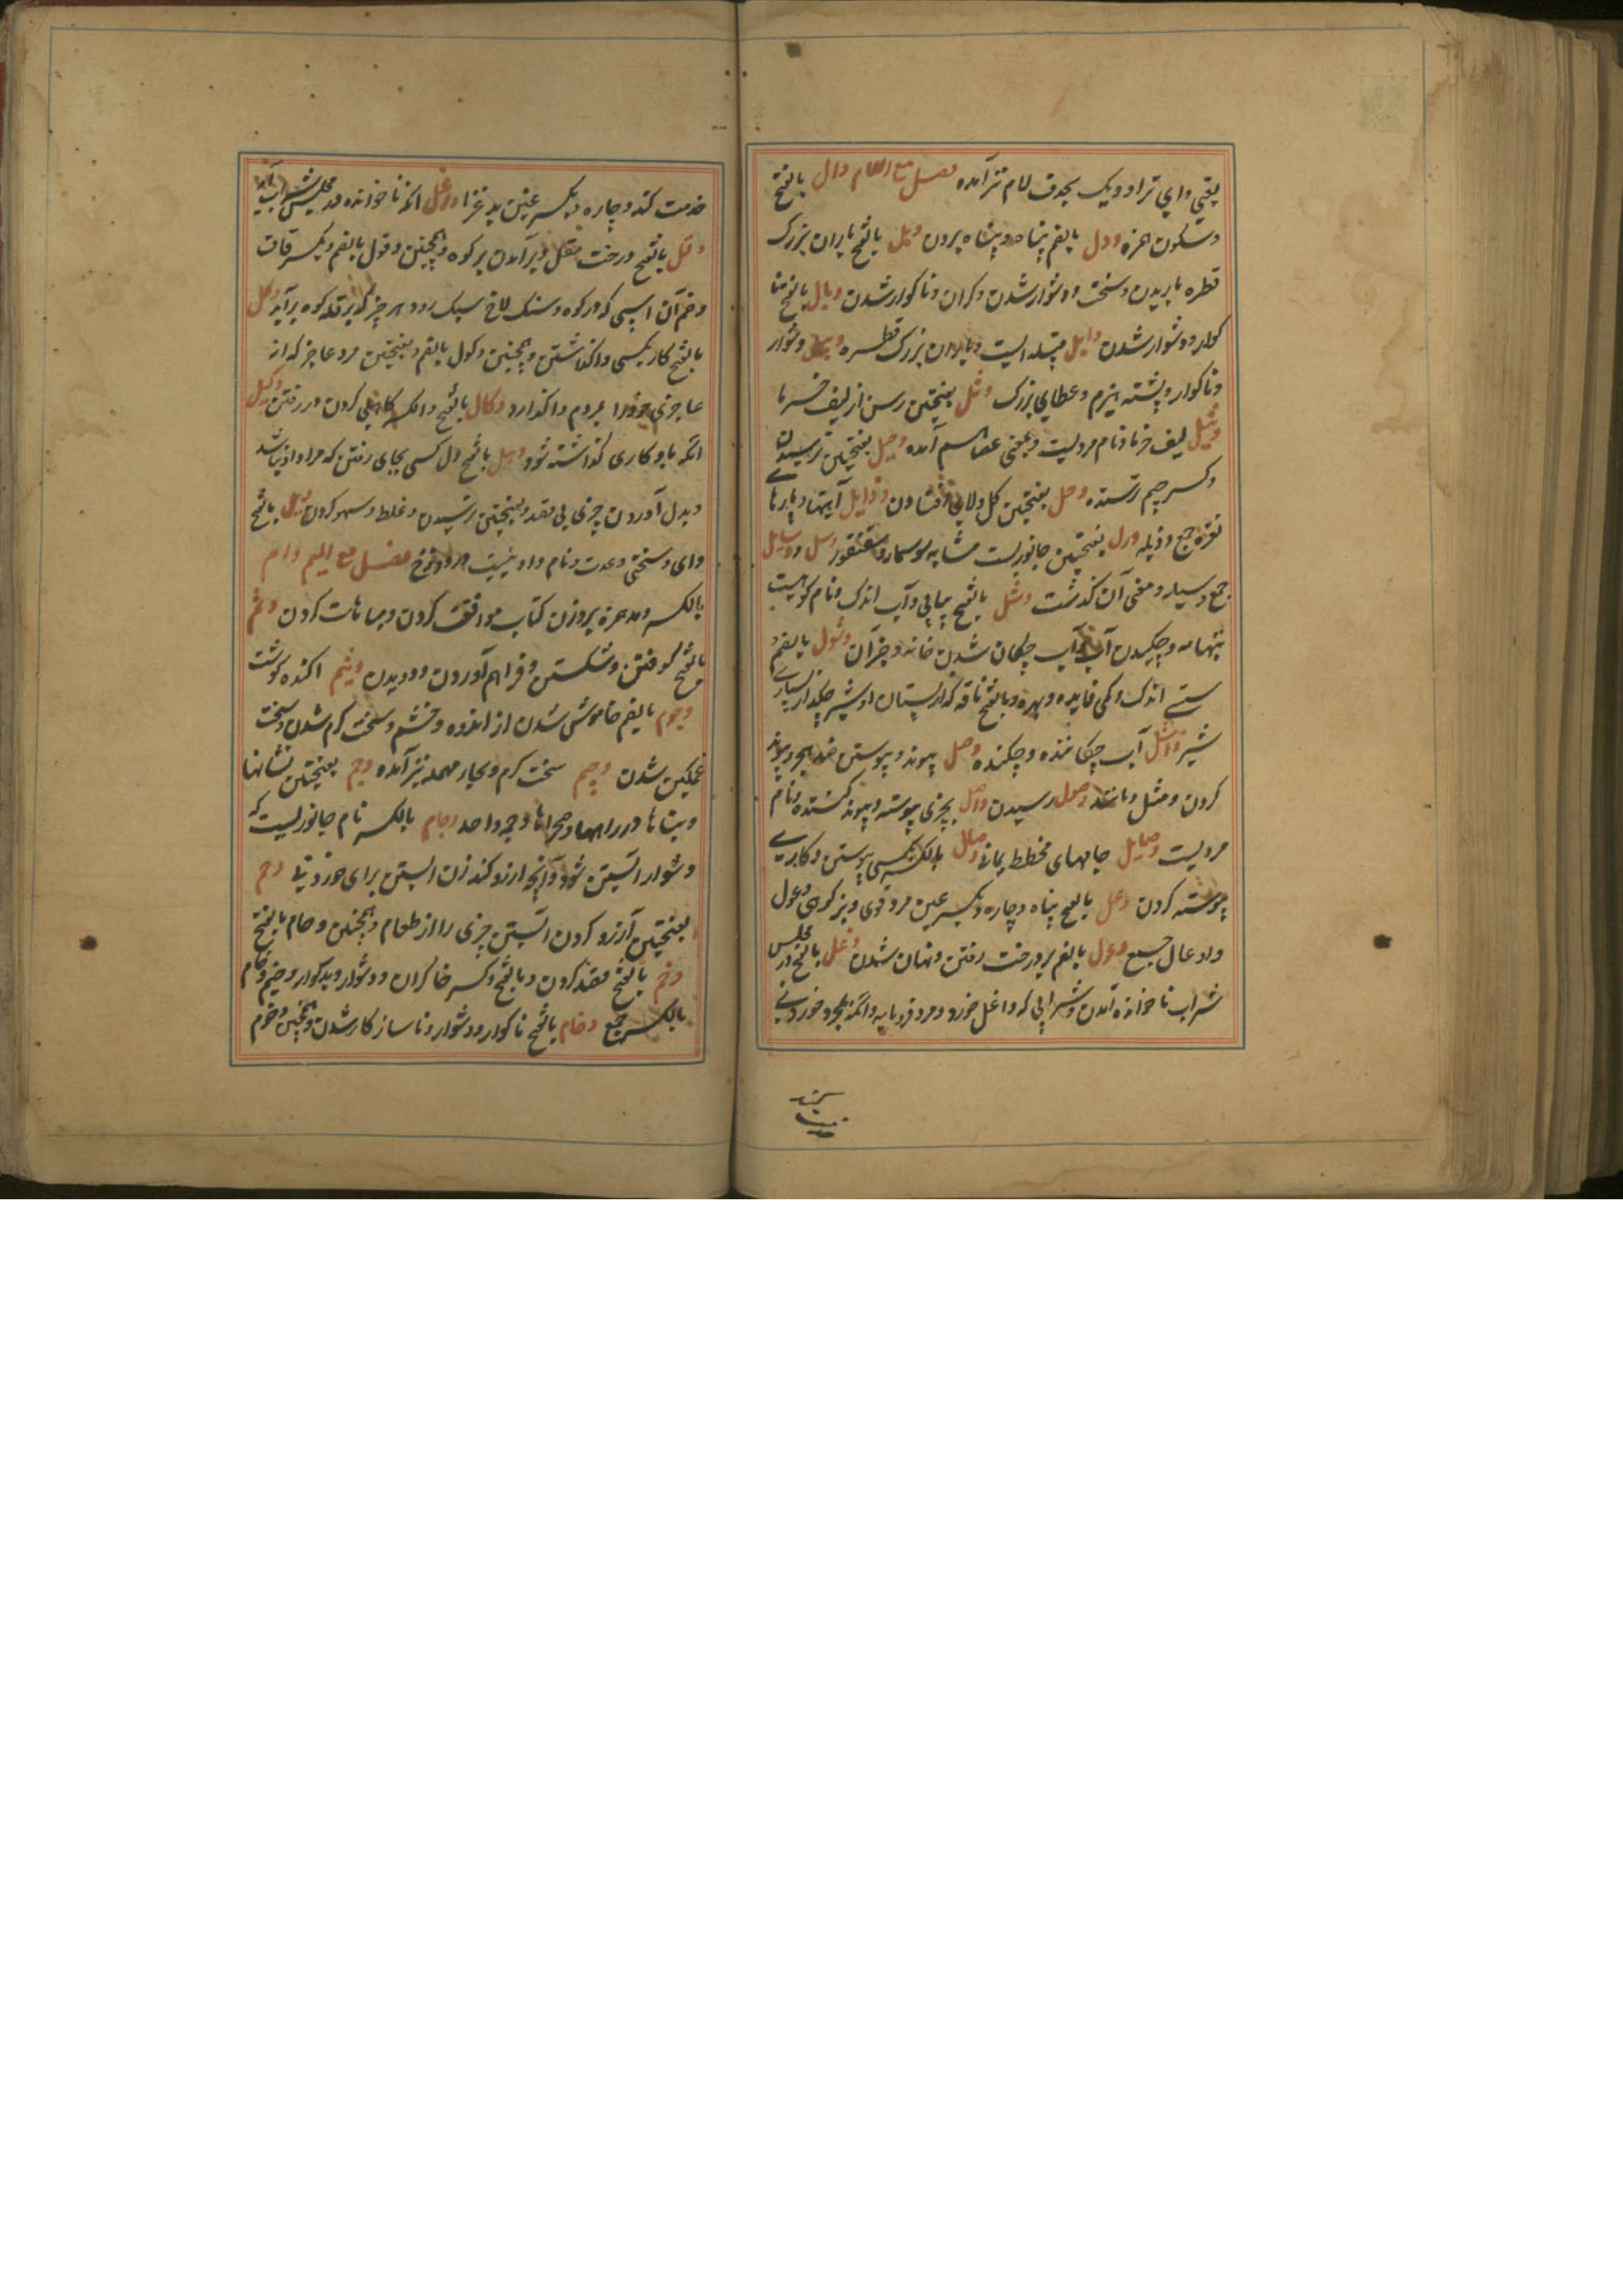 یعنی وای ترا و ویک بحذف لام نیز آمده فصل مع اللام وال بالفتح
و سکون همزه و وول بالضم پناه و پناه بردن وبل بالفتح باران بزرگ
قطره باریدن و سخت و دشوار شدن و کران و ناکوار شدن وبال بالفتح نا
کوار و دشوار شدن وایل قبیله ایست و باران بزرک قطره وبیل دشوار
و ناکوار و پشته هیزم و عطای بزرک وثل بفتحتین رسن از لیف خرما
وثیل لیف خرما و نام مردیست و بمعنی آمده وجل بفتحتین ترسیدن
و کسر جیم ترسنده وحل بفتحتین کل و لای افتادن وذایل آینها و پارها
نقره جمع وذیله ورل بفتحتین جانوریست مشابه سوسمار و سقنقور وسل و وسایل
جمع وسیله و معنی آن کذشت وشل بالفتح بیابی و آب اندک و نام کوهیست
بتهامه و چکیدن آب و آب چکان شدن خانه و جز آن وشول بالضم
سستی اندک و کمی فایده و بهره و بالفتح ناقه که از پستان او شیر چکد از بسیاری
شیر واشل آب چکاننده و چکنده وصل پیوند و پیوستن ضد هجر و پیوند
کردن و مثل و مانند وصول رسیدن واصل بچیزی پیوسته و پیوند کننده و نام
مردیست وصایل جامهای مخطط یمانی وصال بالکسر بکسی پیوستن و کاری
پیوسته کردن وعل بالفتح پناه و چاره و بکسر عین مرد قوی و بز کوهی وعول
و اوعال جمع وغول بالضم بدرخت رفتن و نهان شدن وغل بالفتح در مجلس
شراب ناخوانده آمدن و شرابی که واغل خورد و مرد فرومایه و آنکه بجز خوردنی
خدمت کند و چاره و بکسر عین بد غذا واغل آنکه ناخوانده در مجلس شراب آید
وقل بالفتح درخت مقل و برآمدن بر کوه و همچنین وقول بالضم و بکسر قاف
و ضم آن اسپی که در کوه و سنک لاخ سبک رود و هر چیز که بر قله کوه برآید وکل
بالفتح کار بکسی واکذاشتن و همچنین وکول بالضم و بفتحتین مرد عاجز که از
عاجزی خود را بمردم واکذارد وکال بالفتح و الکسر کاهلی کردن در رفتن وکیل
آنکه باو کاری کذاشته شود وهل بالفتح دل کسی بجای رفتن که مراد او نباشد
و بدل آوردن چیزی بی قصد و بفتحتین ترسیدن و غلط و سهو کردن ویل بالفتح
وای و سختی و عدت و نام وادییست در دوزخ فصل مع المیم وام
بالکسر و مد همزه بر وزن کتاب موافقت کردن و مباهات کردن وثم
بالفتح کوفتن و شکستن و فراهم آوردن و دویدن وثیم اکنده کوشت
وجوم بالضم خاموش شدن از اندوه و خشم و سخت کرم شدن و سخت
غمکین شدن وجیم سخت کرم و بحاء مهمله نیز آمده وجم بفتحتین نشانها
و بناها در راهها و صحراها وجمه واحد وجام بالکسر نام جانوریست که
دشوار آبستن شود و آنچه آرزو کند زن آبستن برای خوردنی وحم
بفتحتین آرزو کردن آبستن چیزی را از طعام و همچنین وحام بالفتح
وخم بالفتح قصد کردن و بالفتح و کسر خا کران و دشوار و بدکوار وخیم وخام
بالکسر جمع وخام بالفتح ناکوار و دشوار و ناسازکار شدن و همچنین وخوم